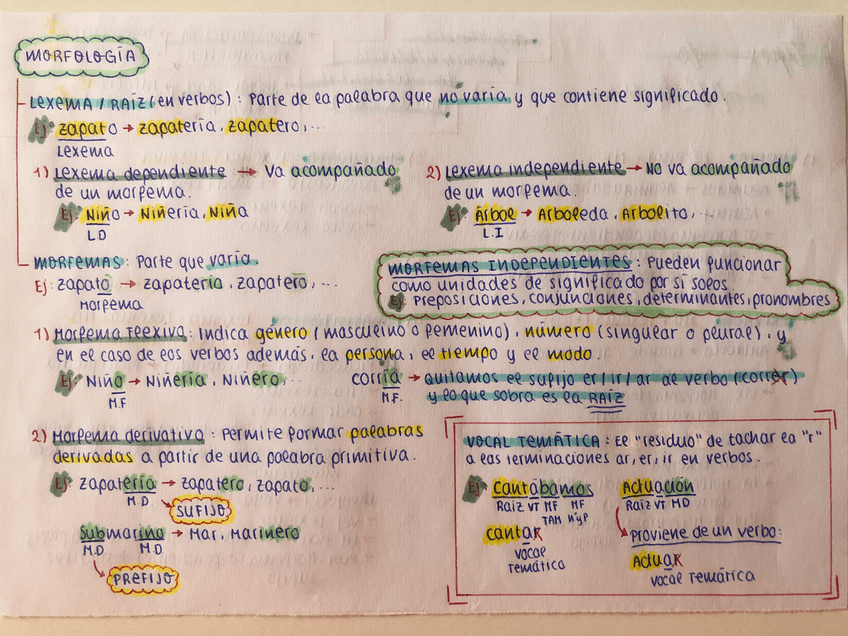 MORFOLOGÍA
LEXEMA / RAÍZ (en verbos): Parte de la palabra que no varía y que contiene significado.
Ej: zapato → zapatería, zapatero, ...
Lexema
1) Lexema dependiente → Va acompañado
de un morfema.
Ej: Niño → Niñería, Niña
L.D
2) Lexema independiente → No va acompañado
de un morfema.
Ej: Árbol → Arboleda, Arbolito, ...
L.I
MORFEMAS: Parte que varía.
Ej: zapato → zapatería, zapatero, ...
morfema
MORFEMAS INDEPENDIENTES: Pueden funcionar
como unidades de significado por sí solos.
Ej: Preposiciones, conjunciones, determinantes, pronombres
1) Morfema flexivo: Indica género (masculino o femenino), número (singular o plural), y
en el caso de los verbos además, la persona, el tiempo y el modo.
Ej: Niño → Niñería, Niñero, ...
M.F
corría → quitamos el sufijo er/ir/ar al verbo (correr)
M.F. y lo que sobra es la RAÍZ
2) Morfema derivativo: Permite formar palabras
derivadas a partir de una palabra primitiva.
Ej: zapatería → zapatero, zapato, ...
M.D
SUFIJO
Submarino → Mar, Marinero
M.D M.D.
PREFIJO
VOCAL TEMÁTICA: El "residuo" de tachar la "r"
a las terminaciones ar, er, ir en verbos.
Ej: cantábamos
Raíz VT MF MF
TAM NyP
cantar
vocal
temática
Actuación
Raíz VT MD
Proviene de un verbo:
Actuar
vocal temática